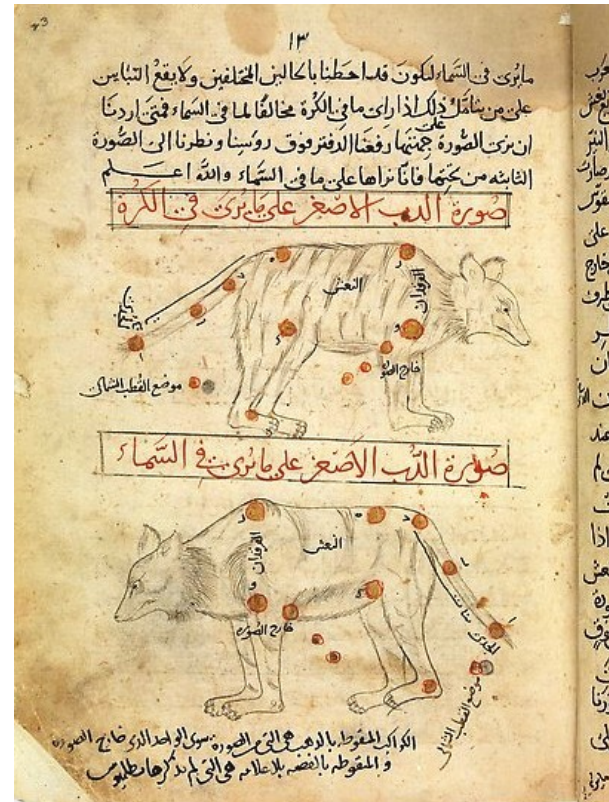 43
١٣
ما يرى فى السماء ليكون قد احطنا بالحالين المختلفين ولا يقع التباين
على من يتأمل ذلك اذا رأى ما فى الكرة مخالفا لما فى السماء فمتى اردنا
ان نرى الصورة على جهتها رفعنا الدفتر فوق رؤسنا ونظرنا الى الصورة
الثانيه من تحتها فانا نراها على ما فى السماء والله اعلم
صورة الدب الاصغر على ما يرى فى الكرة
النعش
الفرقدان
خارج الصوره
الجدى
موضع القطب الشمالى
صورة الدب الاصغر على ما يرى فى السماء
النعش
الفرقدان
خارج الصوره
الجدى
موضع القطب الشمالى
الكواكب المنقوطه بالذهب هى التى من الصورة سوى الواحد الذى خارج الصوره
و المنقوطه بالفضه بلا علامه هى التى لم يذكرها بطلميوس